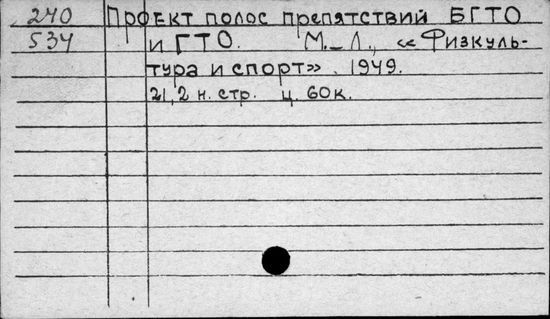 240 Проект полос препятствий БГТО
534 и ГТО. М.–Л., «Физкуль-
тура и спорт». 1949.
21,2 н. стр. ц. 60к.